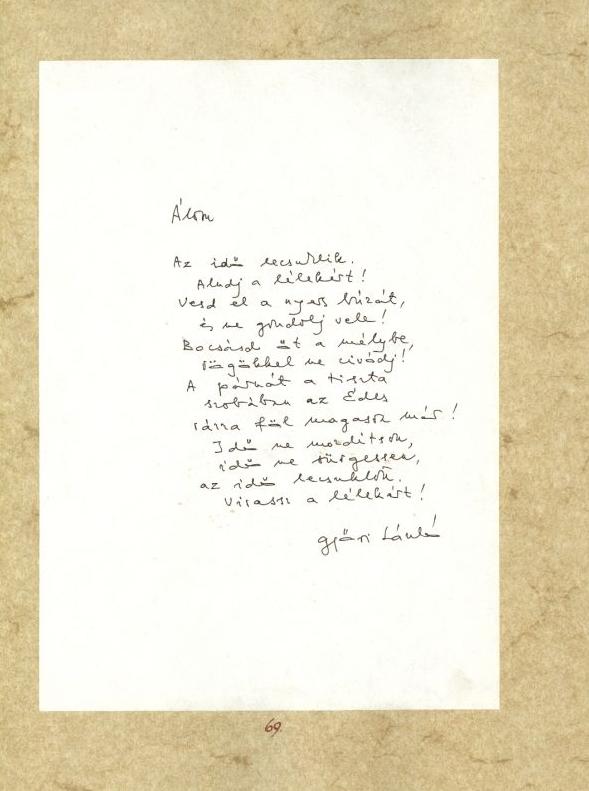 Álom
Az idő lecsuklik.
Aludj a lélekért!
Vesd el a nyers búzát,
és ne gondolj vele!
Bocsásd őt a mélybe,
rögökkel ne civódj!
A párnát a tiszta
szobában az Édes
rázza föl magasok már!
Idő ne mozdítson,
idő ne sürgessen,
az idő lecsuklott.
Virassz a lélekért!
Győri László
69.